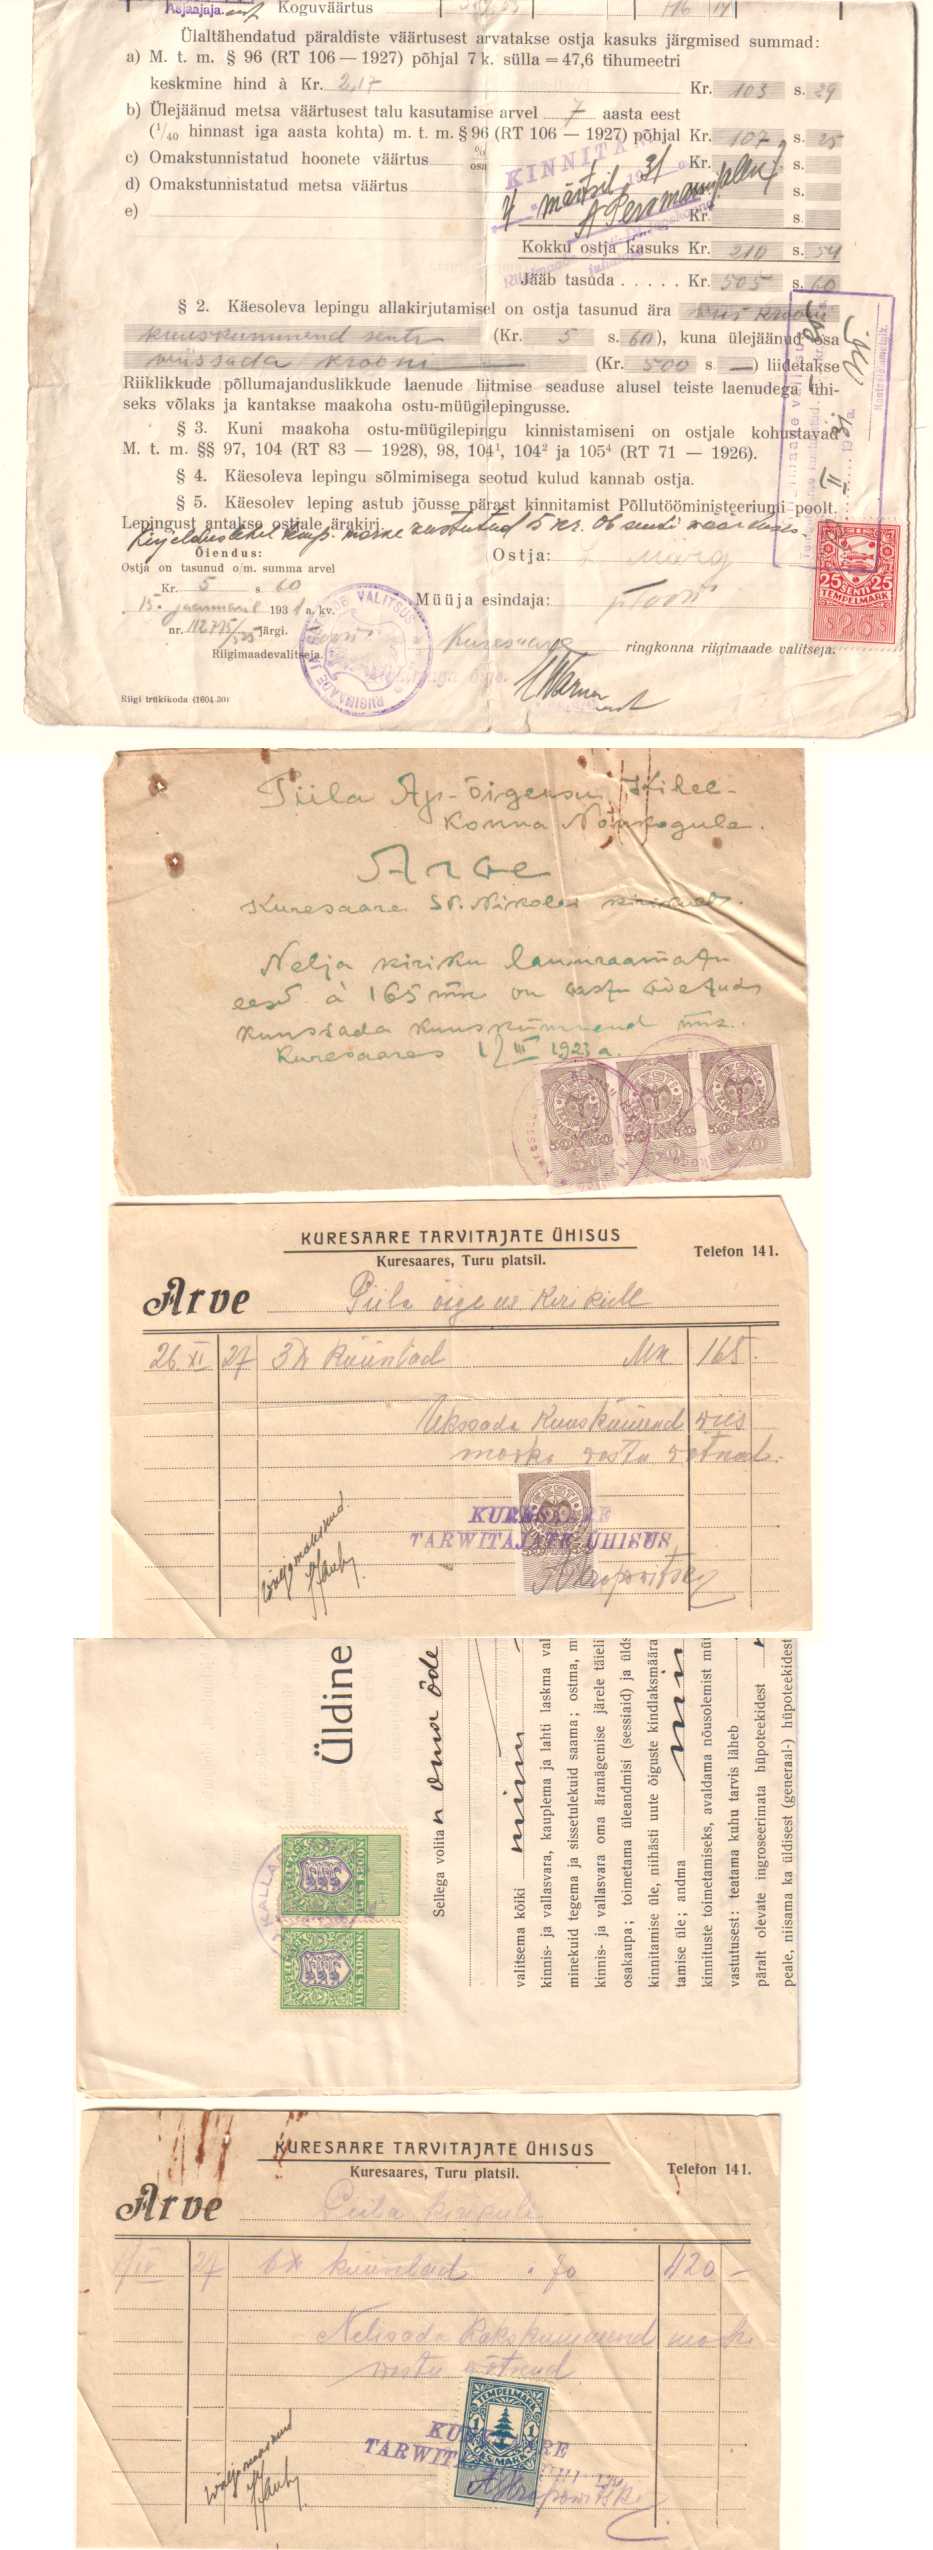 Asjaajaja.
Koguväärtus
Ülaltähendatud päraldiste väärtusest arvatakse ostja kasuks järgmised summad:
a) M. t. m. § 96 (RT 106 — 1927) põhjal 7 k. sülla = 47,6 tihumeetri
keskmine hind à Kr. 2,17 Kr. 103 s. 29
b) Ülejäänud metsa väärtusest talu kasutamise arvel 7 aasta eest
(1/40 hinnast iga aasta kohta) m. t. m. § 96 (RT 106 — 1927) põhjal Kr. 107 s. 25
c) Omakstunnistatud hoonete väärtus % osa Kr. s.
d) Omakstunnistatud metsa väärtus s.
e) Kr. s.
KINNITA
märtsil 31
Kokku ostja kasuks Kr. 210 s. 54
Jääb tasuda . . . . . Kr. 505 s. 60
§ 2. Käesoleva lepingu allakirjutamisel on ostja tasunud ära viis krooni
kuuskümmend senti (Kr. 5 s. 60), kuna ülejäänud osa
viissada krooni — (Kr. 500 s. —) liidetakse
Riiklikkude põllumajanduslikkude laenude liitmise seaduse alusel teiste laenudega ühi-
seks võlaks ja kantakse maakoha ostu-müügilepingusse.
§ 3. Kuni maakoha ostu-müügilepingu kinnistamiseni on ostjale kohustavad
M. t. m. §§ 97, 104 (RT 83 — 1928), 98, 104¹, 104² ja 105⁴ (RT 71 — 1926).
§ 4. Käesoleva lepingu sõlmimisega seotud kulud kannab ostja.
§ 5. Käesolev leping astub jõusse pärast kinnitamist Põllutööministeeriumi poolt.
Lepingust antakse ostjale ärakiri.
Õiendus:
Ostja on tasunud o/m. summa arvel
Kr. 5 s. 60
15. jaanuaril 1931 a. kv.
nr. 112775/525 järgi.
Riigimaadevalitseja
Ostja:
Müüja esindaja:
Kuressaare ringkonna riigimaade valitseja.
25 SENTI 25
TEMPELMARK
25 S
Riigi trükikoda (1604.30)
Piila Ap-õigeusu Kihel-
konna Nõukogule.
Arve
Kuresaare St. Nikolai kirikult.
Nelja kiriku lauluraamatu
eest à 165 mk on vastu võetud
kuussada kuuskümmend mk.
Kuresaares III 1923 a.
KURESAARE TARVITAJATE ÜHISUS
Kuresaares, Turu platsil.
Telefon 141.
Arve Piila õige us kirikule
26. XI 27 3 ℔ küünlad Mk 165.
Ükssada kuuskümmend viis
marka vastu võtnud.
KURESAARE
TARWITAJATE ÜHISUS
Väljamaksnud
Üldine
Sellega volitan oma õde
valitsema kõiki minu
kinnis- ja vallasvara, kauplema ja lahti laskma val
minekuid tegema ja sissetulekuid saama; ostma, m
kinnis- ja vallasvara oma äranägemise järele täieli
osakaupa; toimetama üleandmisi (sessiaid) ja ülds
kinnitamise üle, niihästi uute õiguste kindlaksmäära
tamise üle; andma min
kinnituste toimetamiseks, avaldama nõusolemist mü
vastutusest: teatama kuhu tarvis läheb
päralt olevate ingroseerimata hüpoteekidest
peale, niisama ka üldisest (generaal-) hüpoteekidest
KALLA
ÜKS KROON
ÜKS KROON
KURESAARE TARVITAJATE ÜHISUS
Kuresaares, Turu platsil.
Telefon 141.
Arve Piila kirikule
IV 27 6 ℔ küünlad . 70 420 —
Nelisada kakskümmend marka
vastu võtnud
TEMPELMARK
1 1
ÜKS MARK
KURESAARE
TARWIT
Väljamaksnud